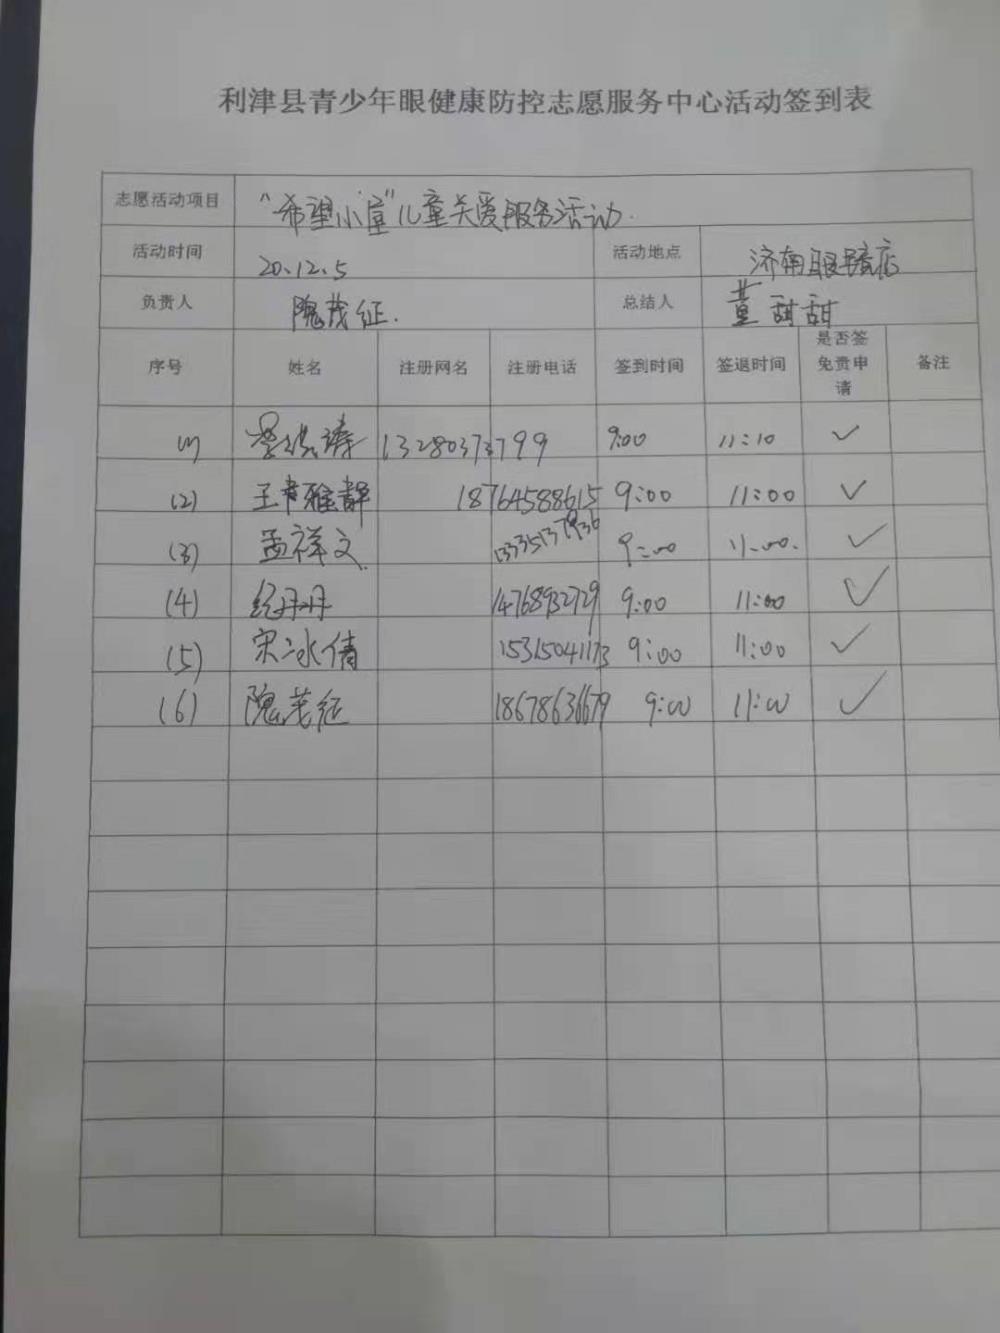 利津县青少年眼健康防控志愿服务中心活动签到表
志愿活动项目 "希望小屋"儿童关爱服务活动.
活动时间 20.12.5 活动地点 济南眼镜店
负责人 隗茂征. 总结人 董甜甜
序号 姓名 注册网名 注册电话 签到时间 签退时间 是否签免责申请 备注
(1) 13280373799 9:00 11:10 ✓
(2) 王雅静 18764588615 9:00 11:00 ✓
(3) 孟祥文 9:00 11:00. ✓
(4) 14768932729 9:00 11:00 ✓
(5) 宋冰倩 15315041173 9:00 11:00 ✓
(6) 隗茂征 18678636679 9:00 11:00 ✓